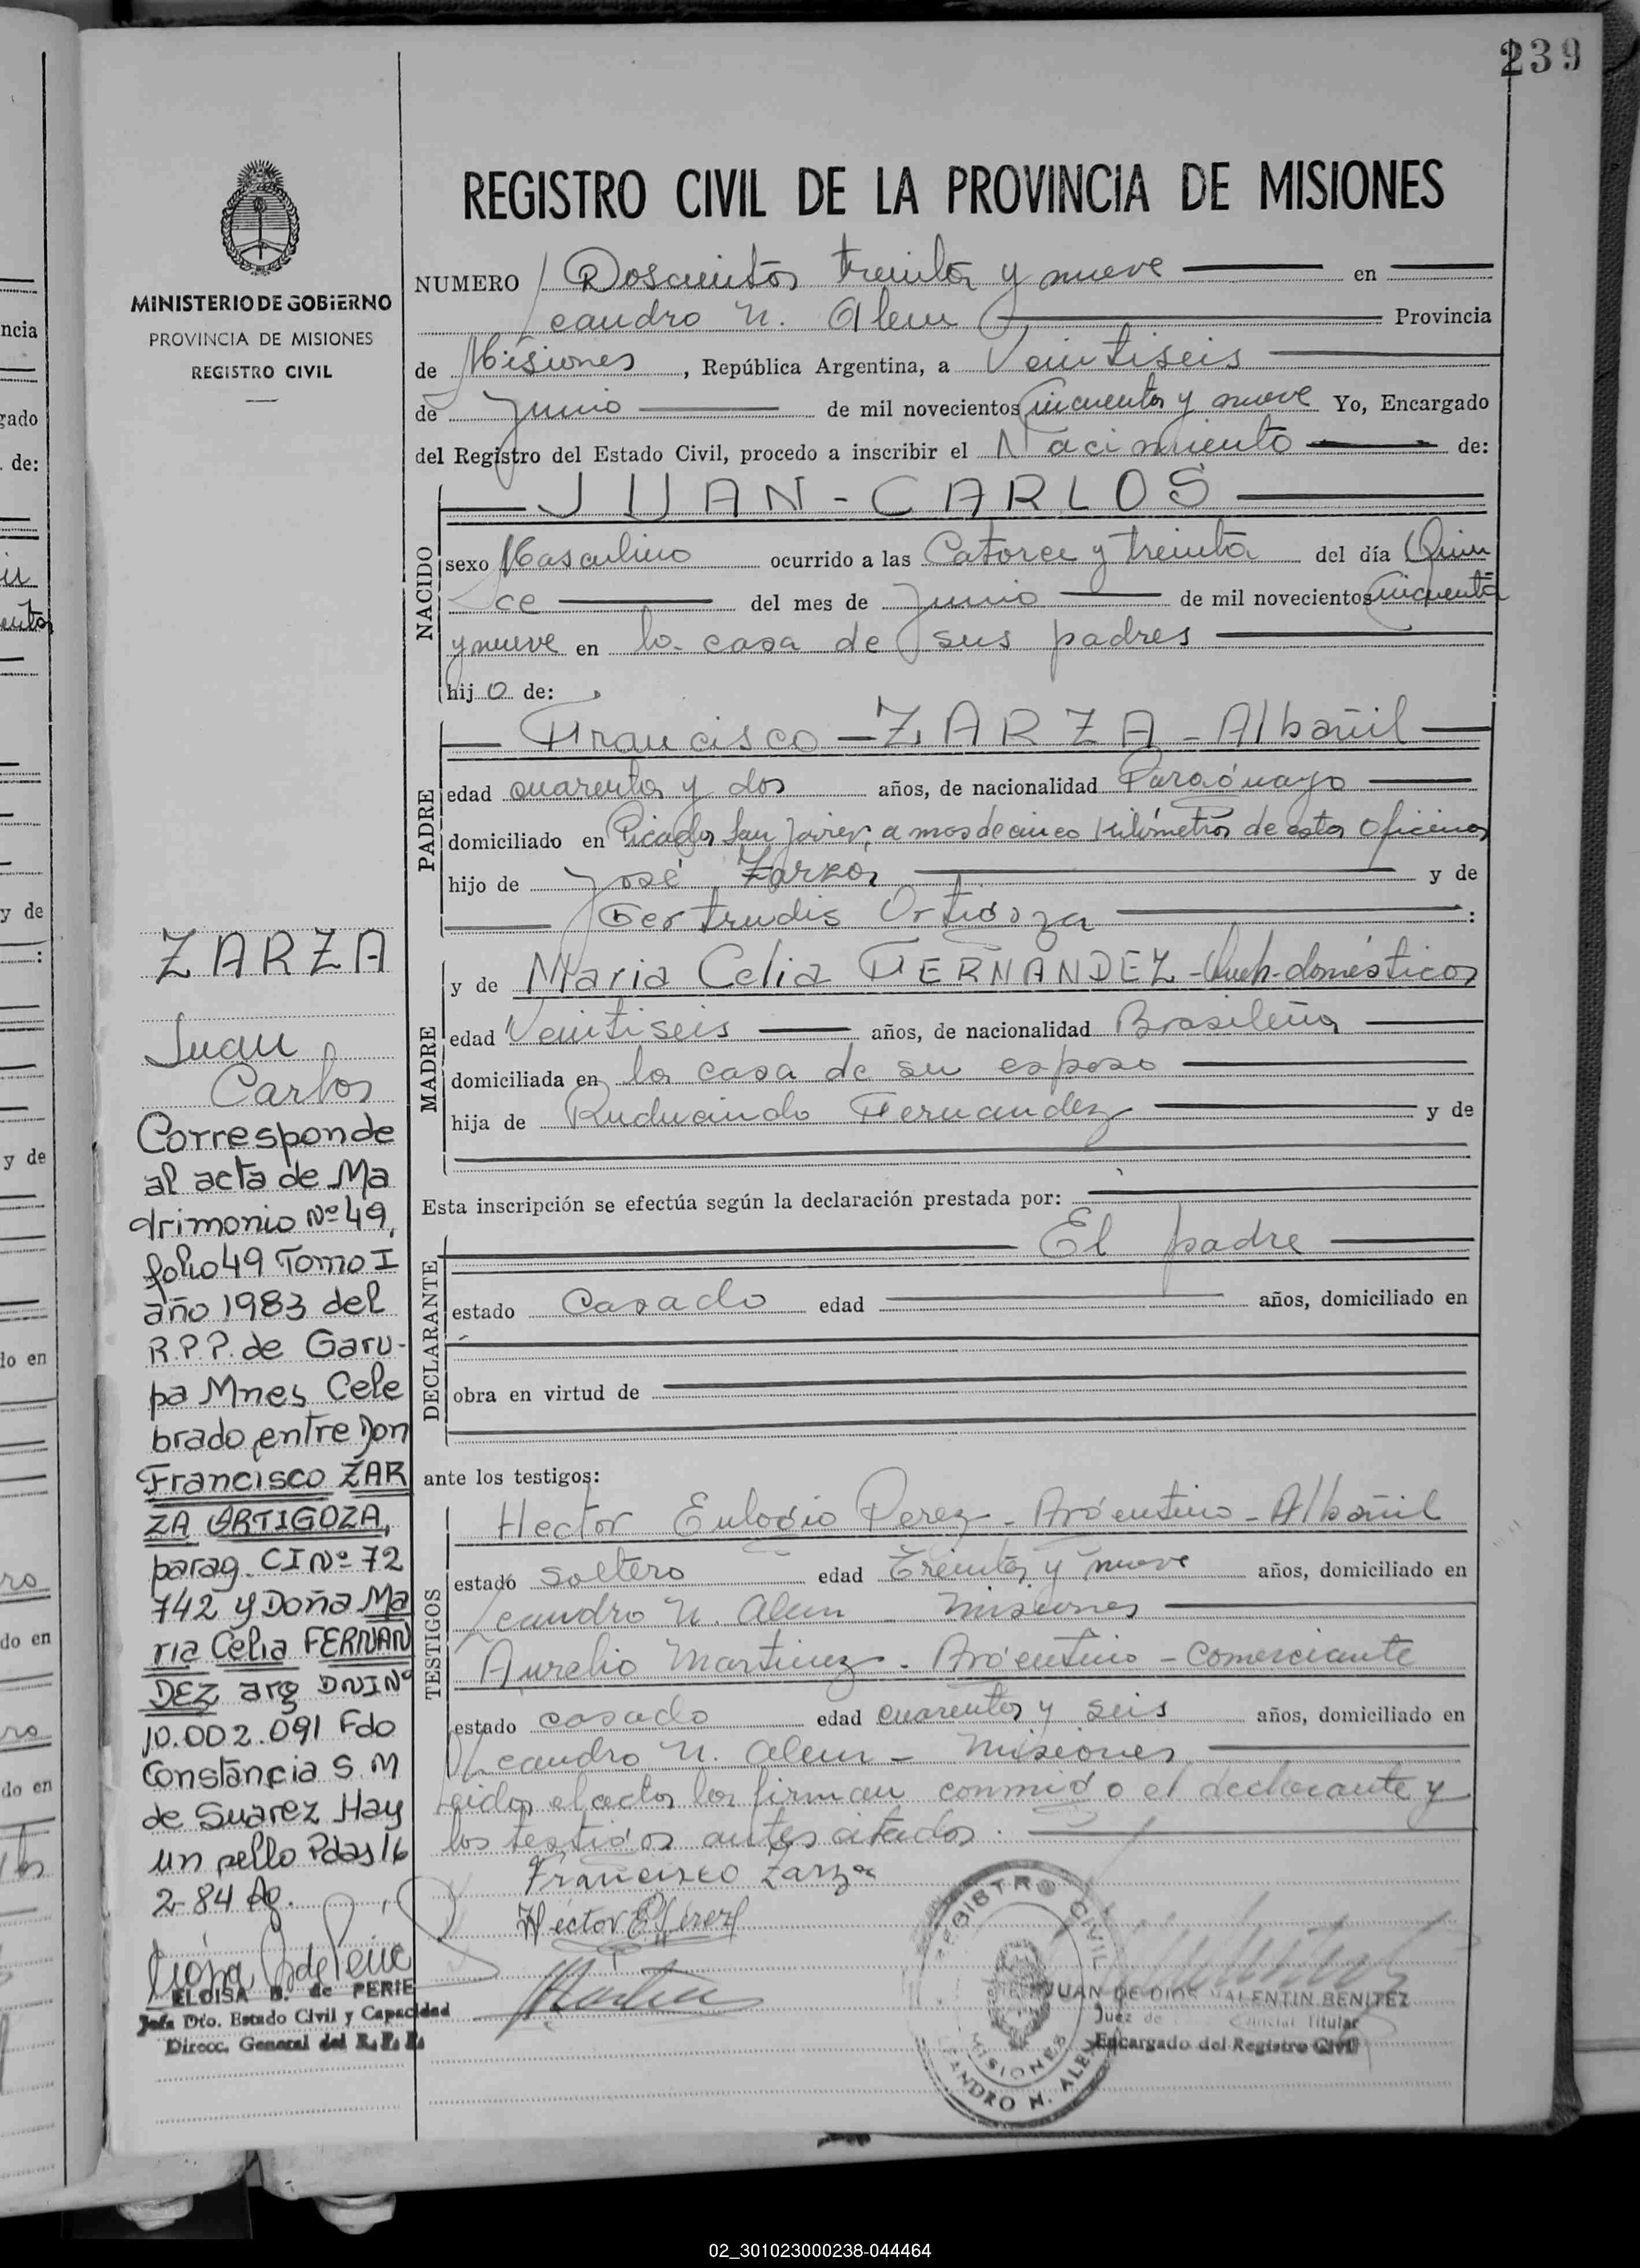 239
REGISTRO CIVIL DE LA PROVINCIA DE MISIONES
MINISTERIO DE GOBIERNO
PROVINCIA DE MISIONES
REGISTRO CIVIL
NUMERO Doscientos treinta y nueve en
Leandro N. Alem Provincia
de Misiones, República Argentina, a Veintiseis
de Junio de mil novecientos cincuenta y nueve Yo, Encargado
del Registro del Estado Civil, procedo a inscribir el Nacimiento de:
NACIDO
JUAN-CARLOS
sexo Masculino ocurrido a las Catorce y treinta del día Quin
ce del mes de Junio de mil novecientos cincuenta
y nueve en la casa de sus padres
hijo de:
PADRE
Francisco - ZARZA - Albañil
edad cuarenta y dos años, de nacionalidad Paraguayo
domiciliado en Picada San Javier, a mas de cinco kilómetros de esta Oficina
hijo de José Zarza y de
Gertrudis Ortigoza :
MADRE
y de Maria Celia FERNANDEZ - Queh-domésticos
edad Veintiseis años, de nacionalidad Brasileña
domiciliada en la casa de su esposo
hija de Ruducindo Fernandez y de
Esta inscripción se efectúa según la declaración prestada por:
DECLARANTE
El padre
estado Casado edad años, domiciliado en
obra en virtud de
ante los testigos:
TESTIGOS
Hector Eulogio Perez - Argentino - Albañil
estado Soltero edad Treinta y nueve años, domiciliado en
Leandro N. Alem Misiones
Aurelio Martinez - Argentino - Comerciante
estado casado edad cuarenta y seis años, domiciliado en
Leandro N. Alem - Misiones
Leida el acta la firman conmigo el declarante y
los testigos antes citados.
Francisco Zarza
Héctor E. Perez
REGISTRO CIVIL
MISIONES
LEANDRO N. ALEM
JUAN DE DIOS VALENTIN BENITEZ
Juez de
Oficial Titular
Encargado del Registro Civil
ZARZA
Juan
Carlos
Corresponde
al acta de Ma
trimonio Nº 49,
folio 49 Tomo I
año 1983 del
R.P.P. de Garu-
pa Mnes Cele
brado entre Don
Francisco ZAR
ZA ORTIGOZA,
parag. CI Nº 72
742 y Doña Ma
ria Celia FERNAN
DEZ arg DNI Nº
10.002.091 Fdo
Constancia S. M
de Suarez Hay
un sello Pdas 16
2-84
ELOISA B. de PERIE
Jefa Dto. Estado Civil y Capacidad
Direcc. General del R.P.P.
ncia
gado
. de:
y de
:
y de
do en
do en
do en
02_301023000238-044464